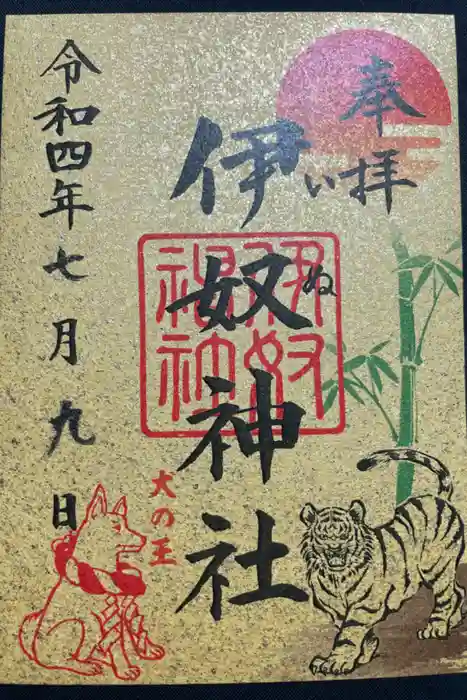 奉拝
伊奴神社
いぬ
令和四年七月九日
犬の王
伊奴
神社